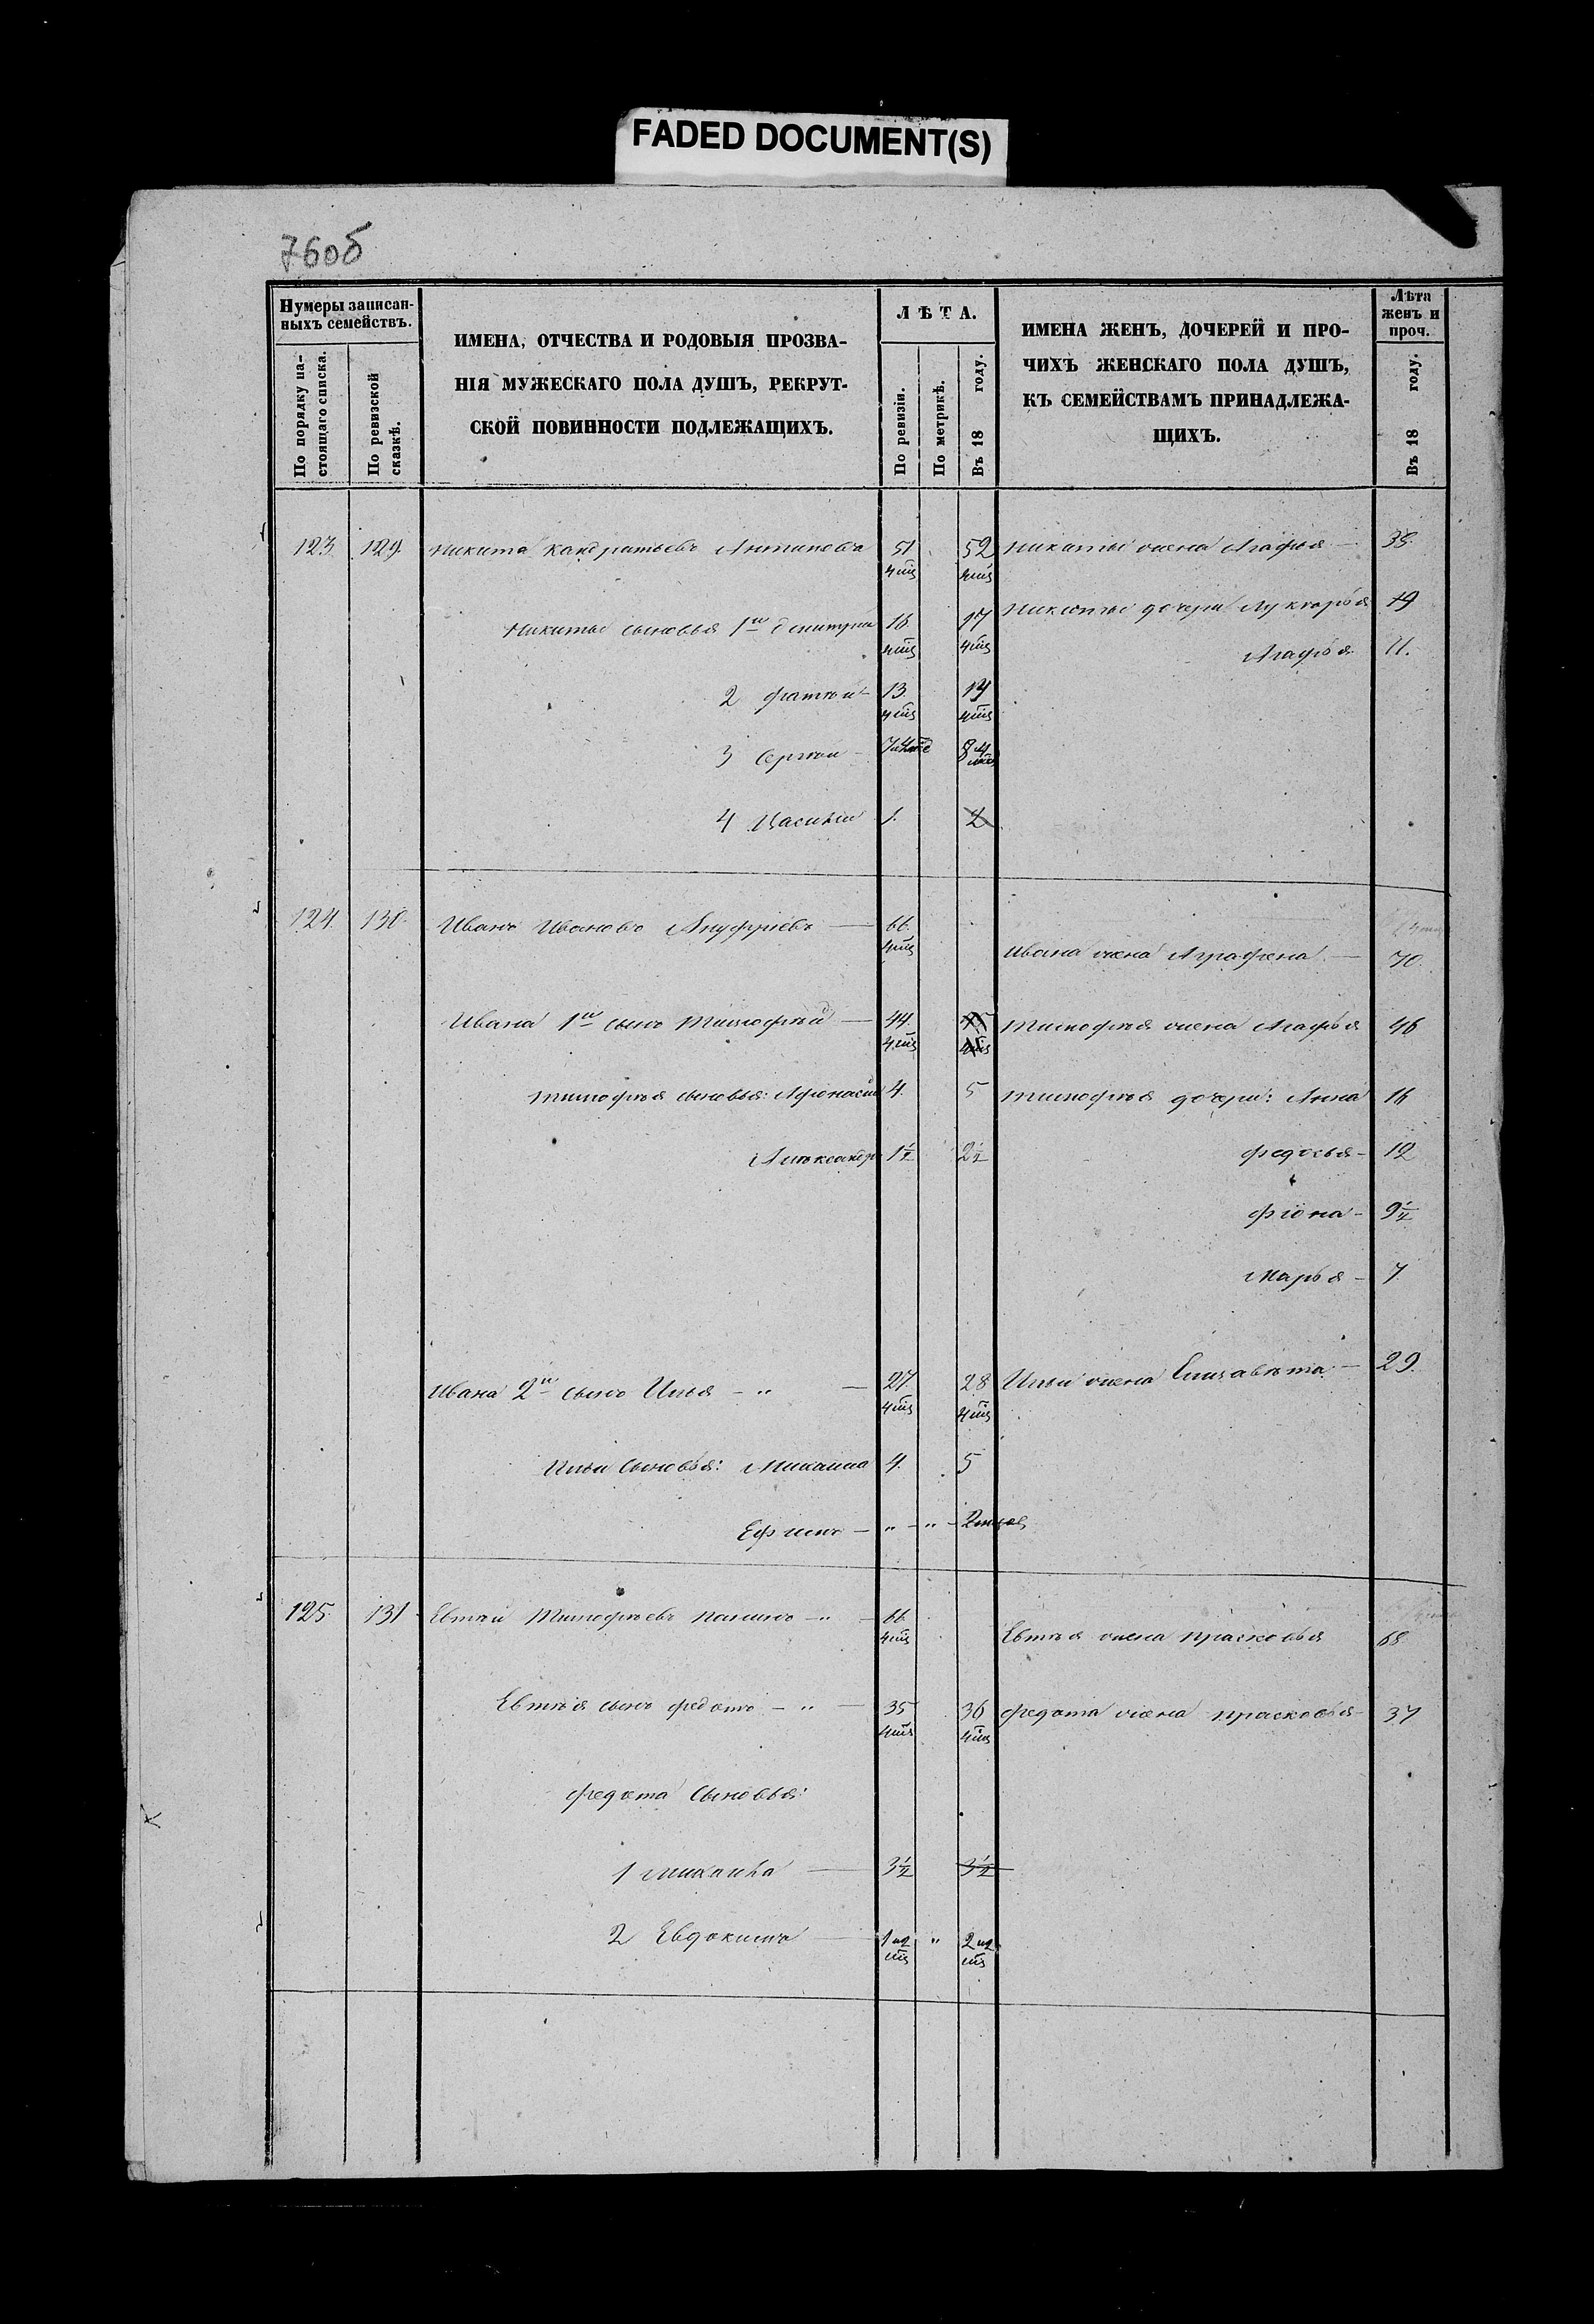 FADED DOCUMENT(S)
760б
Нумеры записан-
ныхъ семействъ.
По порядку на-
стоящаго списка.
По ревизской
сказкѣ.
ИМЕНА, ОТЧЕСТВА И РОДОВЫЯ ПРОЗВА-
НІЯ МУЖЕСКАГО ПОЛА ДУШЪ, РЕКРУТ-
СКОЙ ПОВИННОСТИ ПОДЛЕЖАЩИХЪ.
ЛѢТА.
По ревизіи.
По метрикѣ.
Въ 18 году.
ИМЕНА ЖЕНЪ, ДОЧЕРЕЙ И ПРО-
ЧИХЪ ЖЕНСКАГО ПОЛА ДУШЪ,
КЪ СЕМЕЙСТВАМЪ ПРИНАДЛЕЖА-
ЩИХЪ.
Лѣта
женъ и
проч.
Въ 18 году.
123. 129. Никита Кандратьевъ Антиповъ 51 52 Никиты жена Агафья — 38.
4 мц 4 мц
Никиты сыновья 1й Дмитрій 16 17 Никиты дочери Лукерья 19
4 мц 4 мц
Агафья 11.
2 13. 14
4 мц 4 мц
3 Сергѣй — 7 8
4 Василій 1. 2
124. 130. Иванъ Ивановъ Ануфріевъ — 66.
4 мц
Ивана жена Аграфена — 70.
Ивана 1й сынъ Тимофѣй — 44. 45 Тимофѣя жена Агафья 46
4 мц 4 мц
Тимофѣя сыновья: Афонасій 4. 5 Тимофѣя дочери: Анна 16
Александръ 1½ 2½ Федосья — 12
Фіона — 9½
Марья — 7
Ивана 2й сынъ Илья — " — 27 28 Ильи жена Елизавѣта — 29.
4 мц 4 мц
Ильи сыновья: Михаила 4. 5
Ефимъ — " — " — 2
125. 131. Евтѣй Тимофѣевъ — " — 66.
4 мц
Евтѣя жена Прасковья 68
Евтѣя сынъ Федотъ — " — 35 36 Федота жена Прасковья — 37
4 мц 4 мц
Федота сыновья:
1 Михаила — 3½ 3½
2 Евдокимъ — 1 " 2